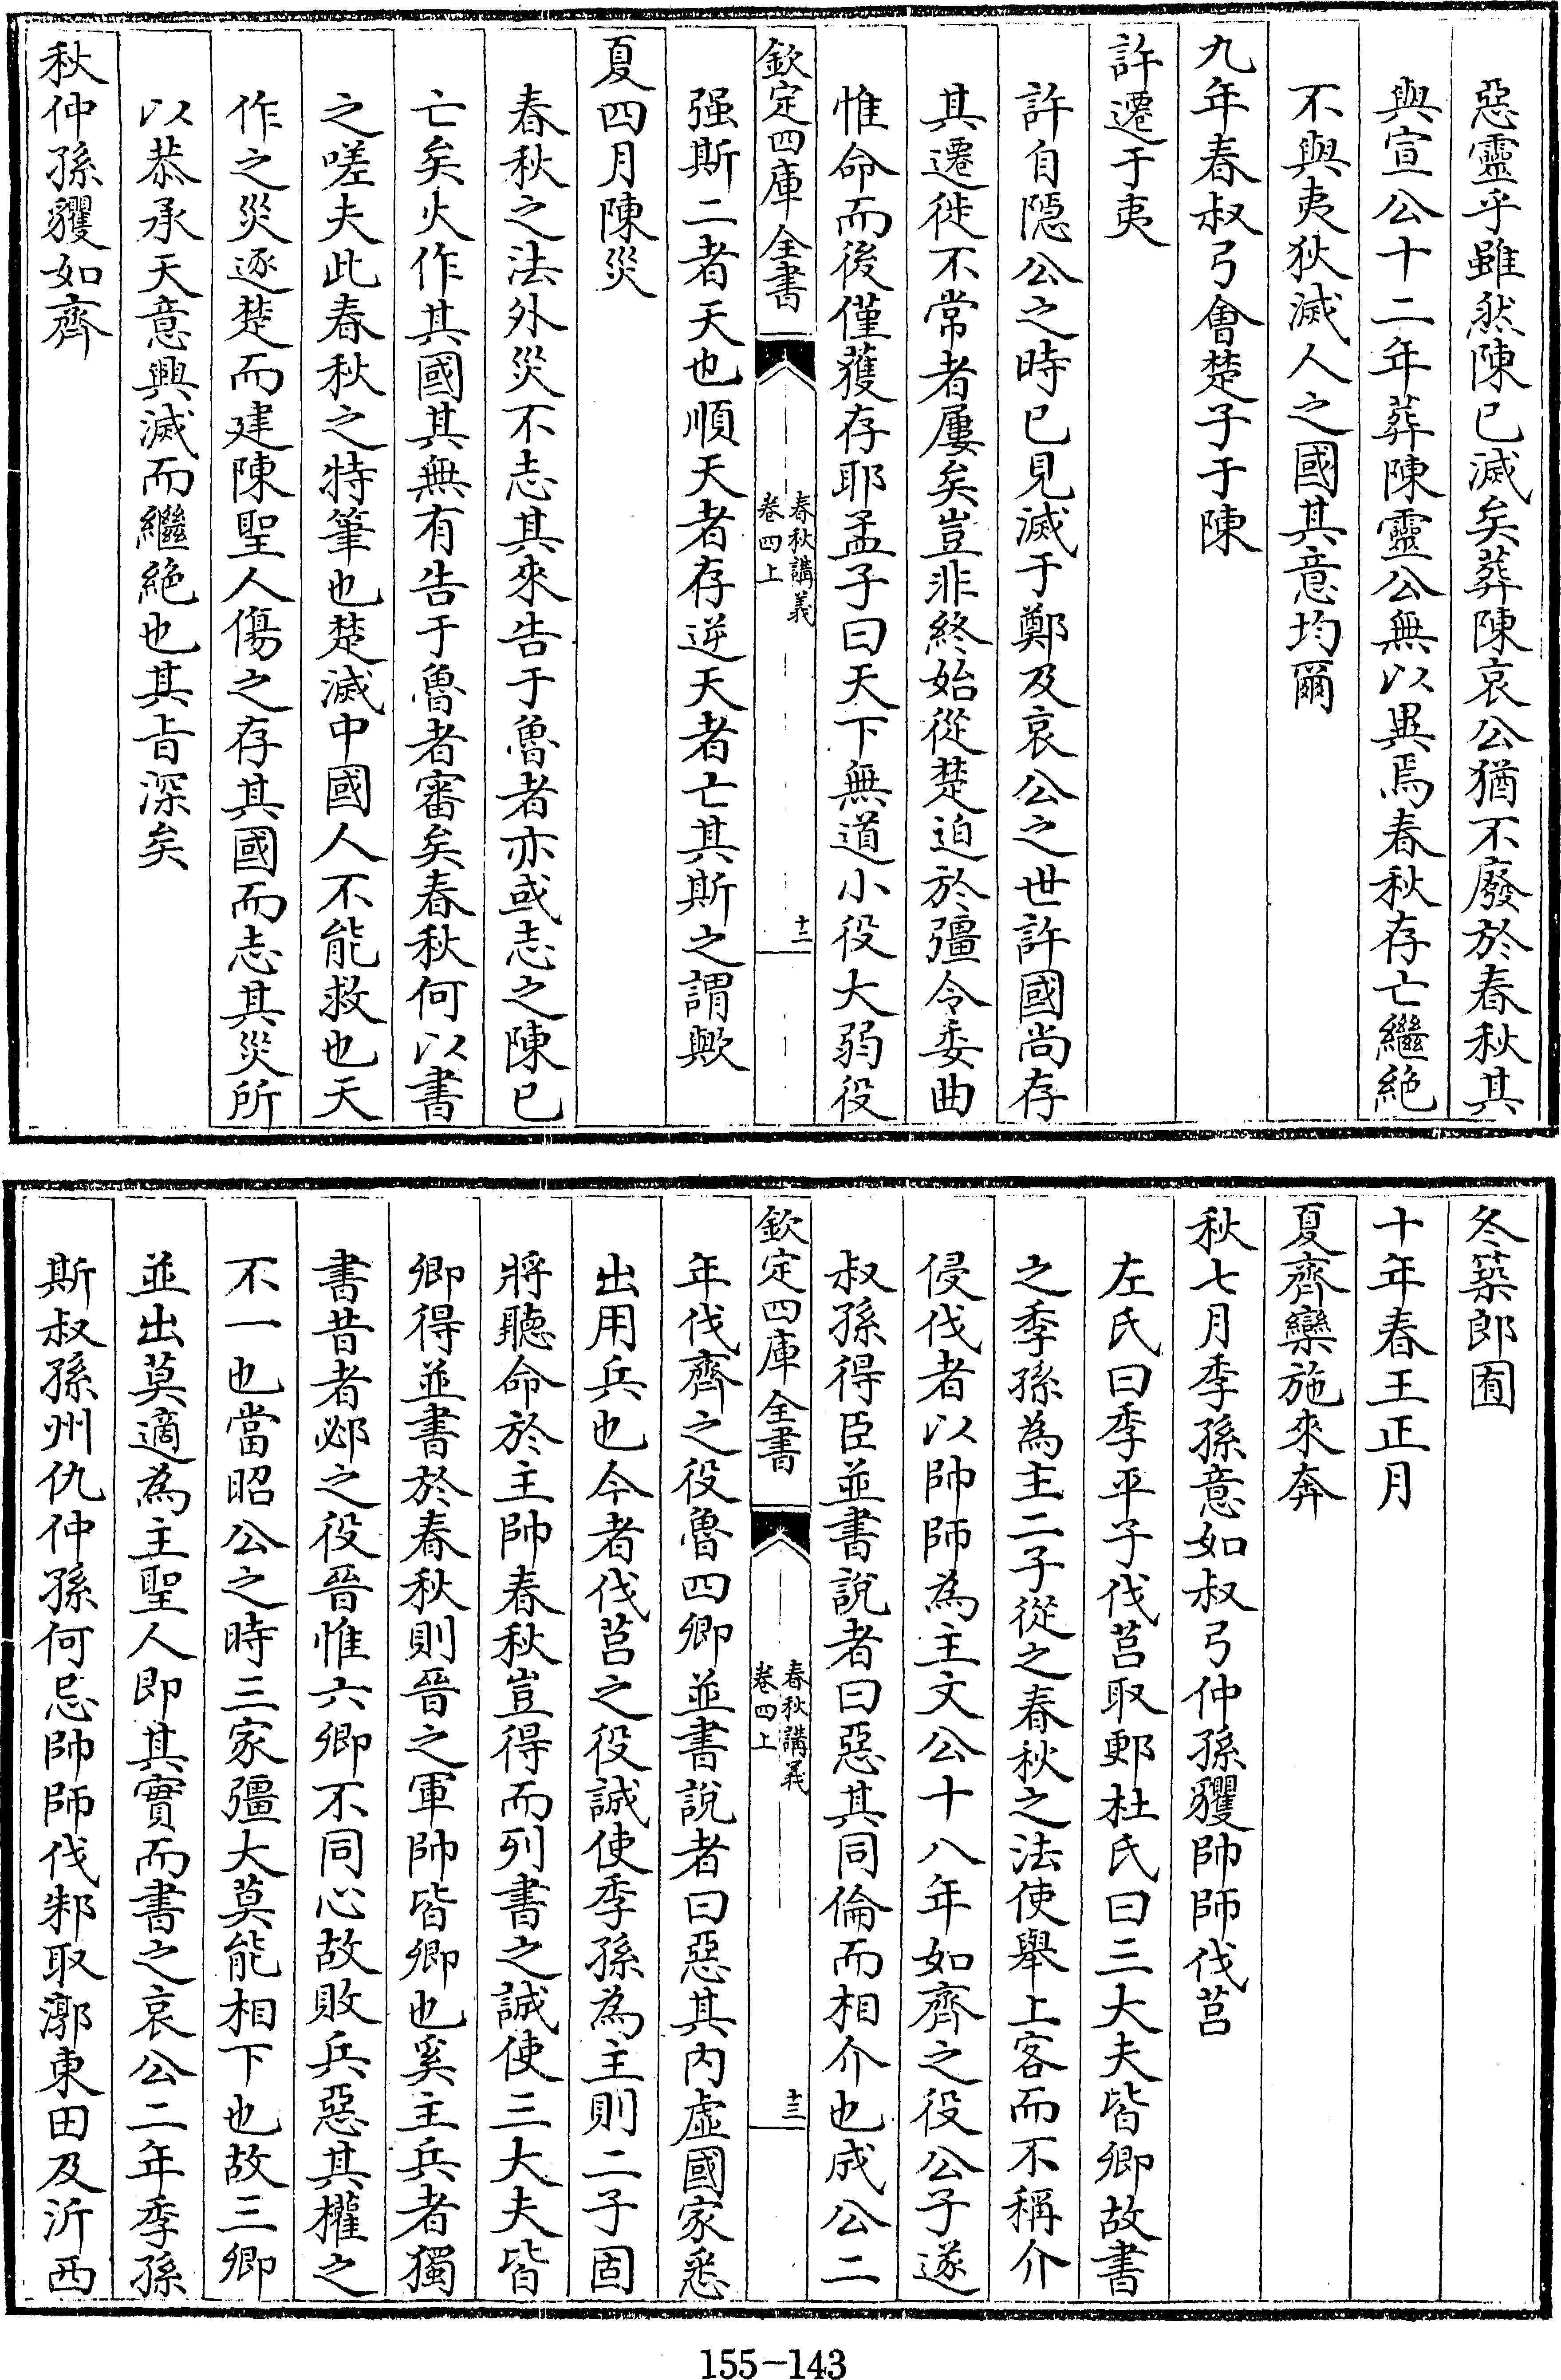 惡靈乎雖然陳已滅矣葬陳哀公猶不廢於春秋其
與宣公十二年葬陳靈公無以異焉春秋存亡繼絶
不與夷狄滅人之國其意均爾
九年春叔弓會楚子于陳
許遷于夷
許自隱公之時已見滅于鄭及哀公之世許國尚存
其遷徙不常者屢矣豈非終始從楚迫於彊令委曲
惟命而後僅獲存耶孟子曰天下無道小役大弱役
欽定四庫全書
春秋講義
卷四上
十二
强斯二者天也順天者存逆天者亡其斯之謂歟
夏四月陳災
春秋之法外災不志其來告于魯者亦或志之陳已
亡矣火作其國其無有告于魯者審矣春秋何以書
之嗟夫此春秋之特筆也楚滅中國人不能救也天
作之災逐楚而建陳聖人傷之存其國而志其災所
以恭承天意興滅而繼絶也其旨深矣
秋仲孫貜如齊
冬築郎囿
十年春王正月
夏齊欒施來奔
秋七月季孫意如叔弓仲孫貜帥師伐莒
左氏曰季平子伐莒取郠杜氏曰三大夫皆卿故書
之季孫為主二子從之春秋之法使舉上客而不稱介
侵伐者以帥師為主文公十八年如齊之役公子遂
叔孫得臣並書說者曰惡其同倫而相介也成公二
欽定四庫全書
春秋講義
卷四上
十三
年伐齊之役魯四卿並書說者曰惡其內虛國家悉
出用兵也今者伐莒之役誠使季孫為主則二子固
將聽命於主帥春秋豈得而列書之誠使三大夫皆
卿得並書於春秋則晉之軍帥皆卿也奚主兵者獨
書昔者邲之役晉惟六卿不同心故敗兵惡其權之
不一也當昭公之時三家彊大莫能相下也故三卿
並出莫適為主聖人即其實而書之哀公二年季孫
斯叔孫州仇仲孫何忌帥師伐邾取漷東田及沂西
155-143